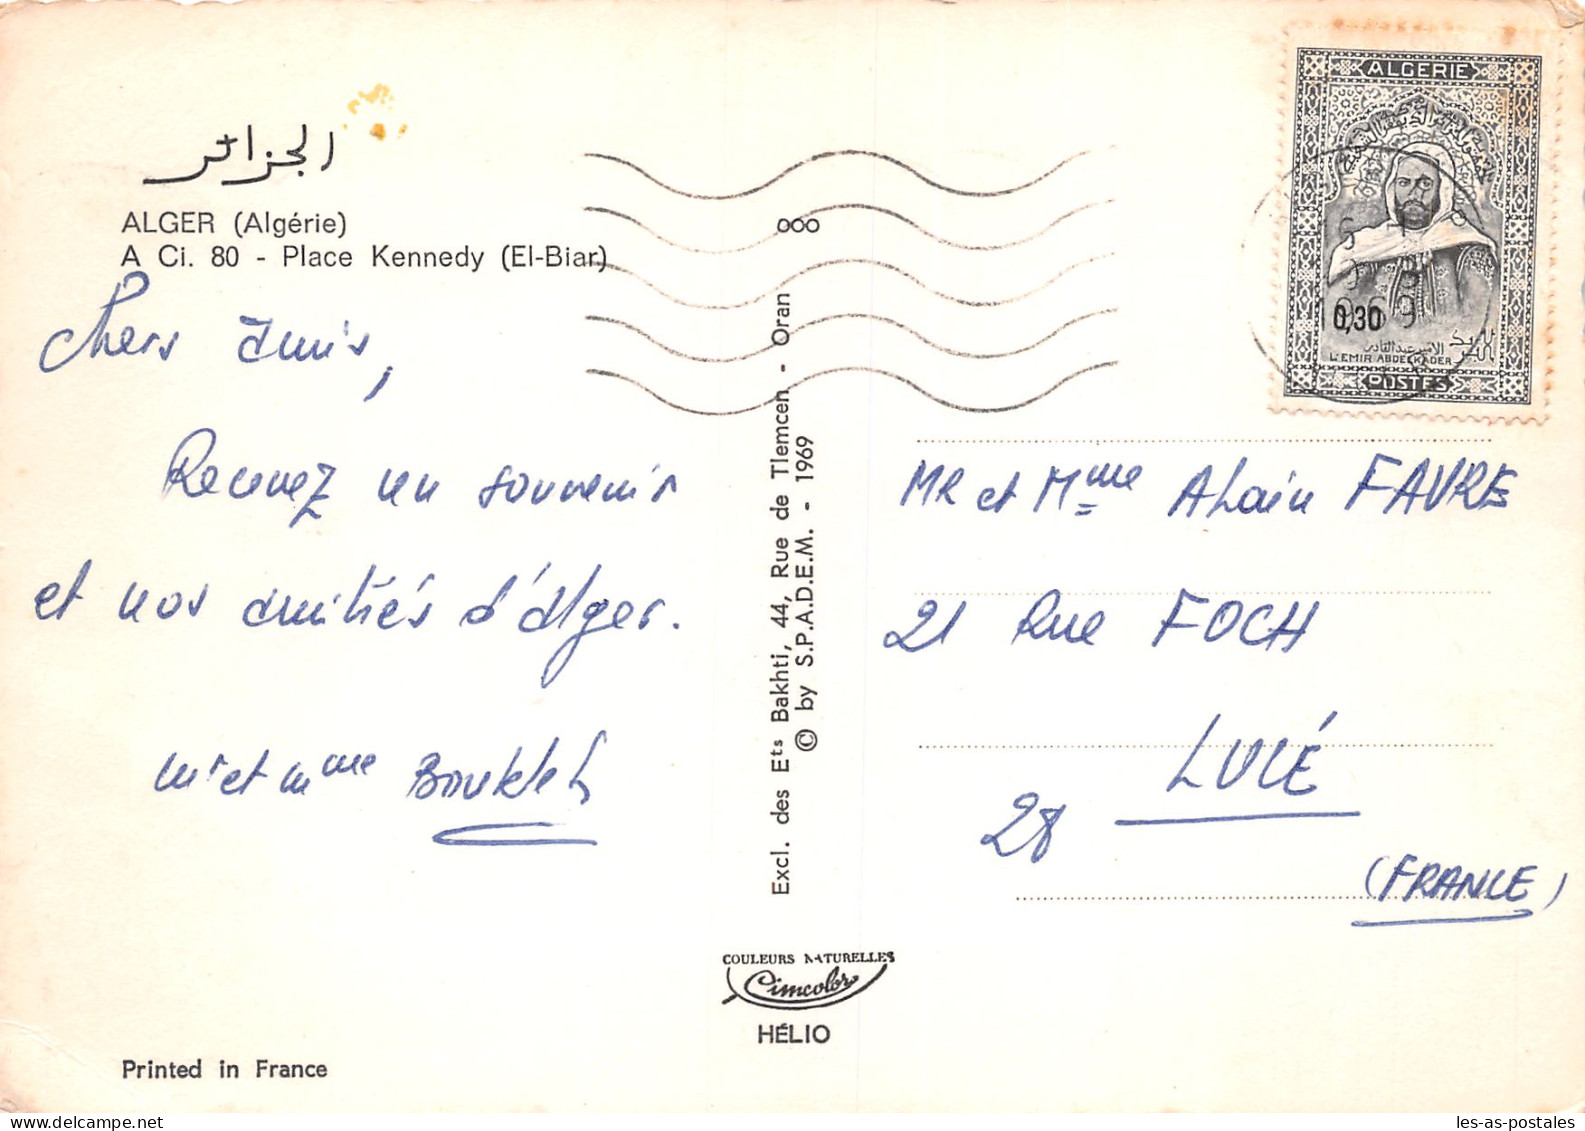 الجزائر
ALGER (Algérie)
A Ci. 80 - Place Kennedy (El-Biar)
Chers Amis,
Recevez un souvenir
et nos amitiés d'Alger.
Mr et Mme Boukleh
ooo
Excl. des Ets Bakhti, 44, Rue de Tlemcen - Oran
© by S.P.A.D.E.M. - 1969
COULEURS NATURELLES
Cimcolor
HÉLIO
Printed in France
ALGERIE
0,30
الامير عبد القادر
L'EMIR ABDELKADER
بريد
POSTES
MR et Mme Alain FAVRE
21 Rue FOCH
LUCÉ
28
(FRANCE)
les-as-postales